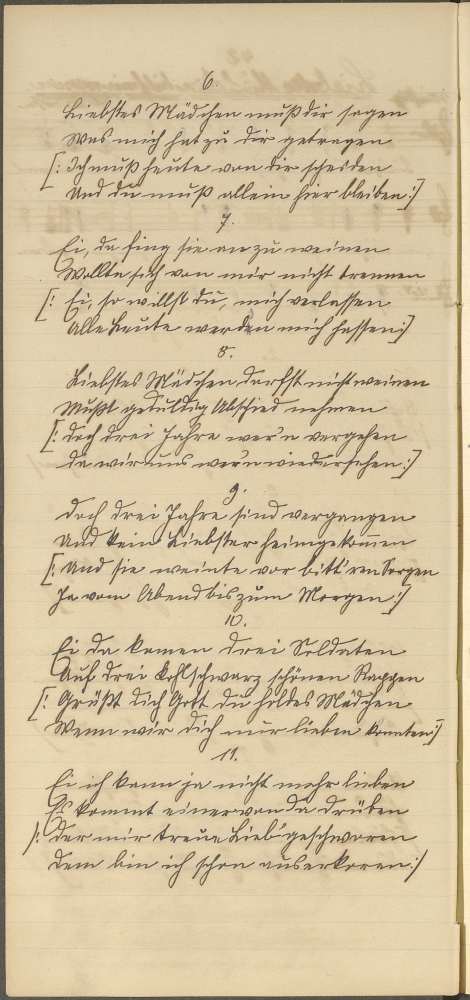 6.
Liebstes Mädchen muß dir sagen
Was mich hat zu dir getragen
[: Ich muß heute von dir scheiden
Und du muß allein hier bleiben :]
7.
Ei, da fing sie an zu weinen
Wollte sich von mir nicht trennen
[: Ei, so willst du, mich verlassen
Alle Leute werden mich hassen :]
8.
Liebstes Mädchen darfst nicht weinen
Mußt geduldig Abschied nehmen
[: Doch drei Jahre wer'n vergehen
Da wir uns wer'n wiedersehen :]
9.
Doch drei Jahre sind vergangen
Und kein Liebster heimgekommen
[: Und sie weinte vor bitt'ren Sorgen
Ja vom Abend bis zum Morgen :]
10.
Ei da kamen drei Soldaten
Auf drei kohlschwarz schönen Rappen
[: Grüßt dich Gott du holdes Mädchen
Wenn wir dich nur lieben könnten :]
11.
Ei ich kann ja nicht mehr lieben
Es kommt einer von da drüben
/: Der mir treue Lieb' geschworen
Dem bin ich schon auserkoren :/